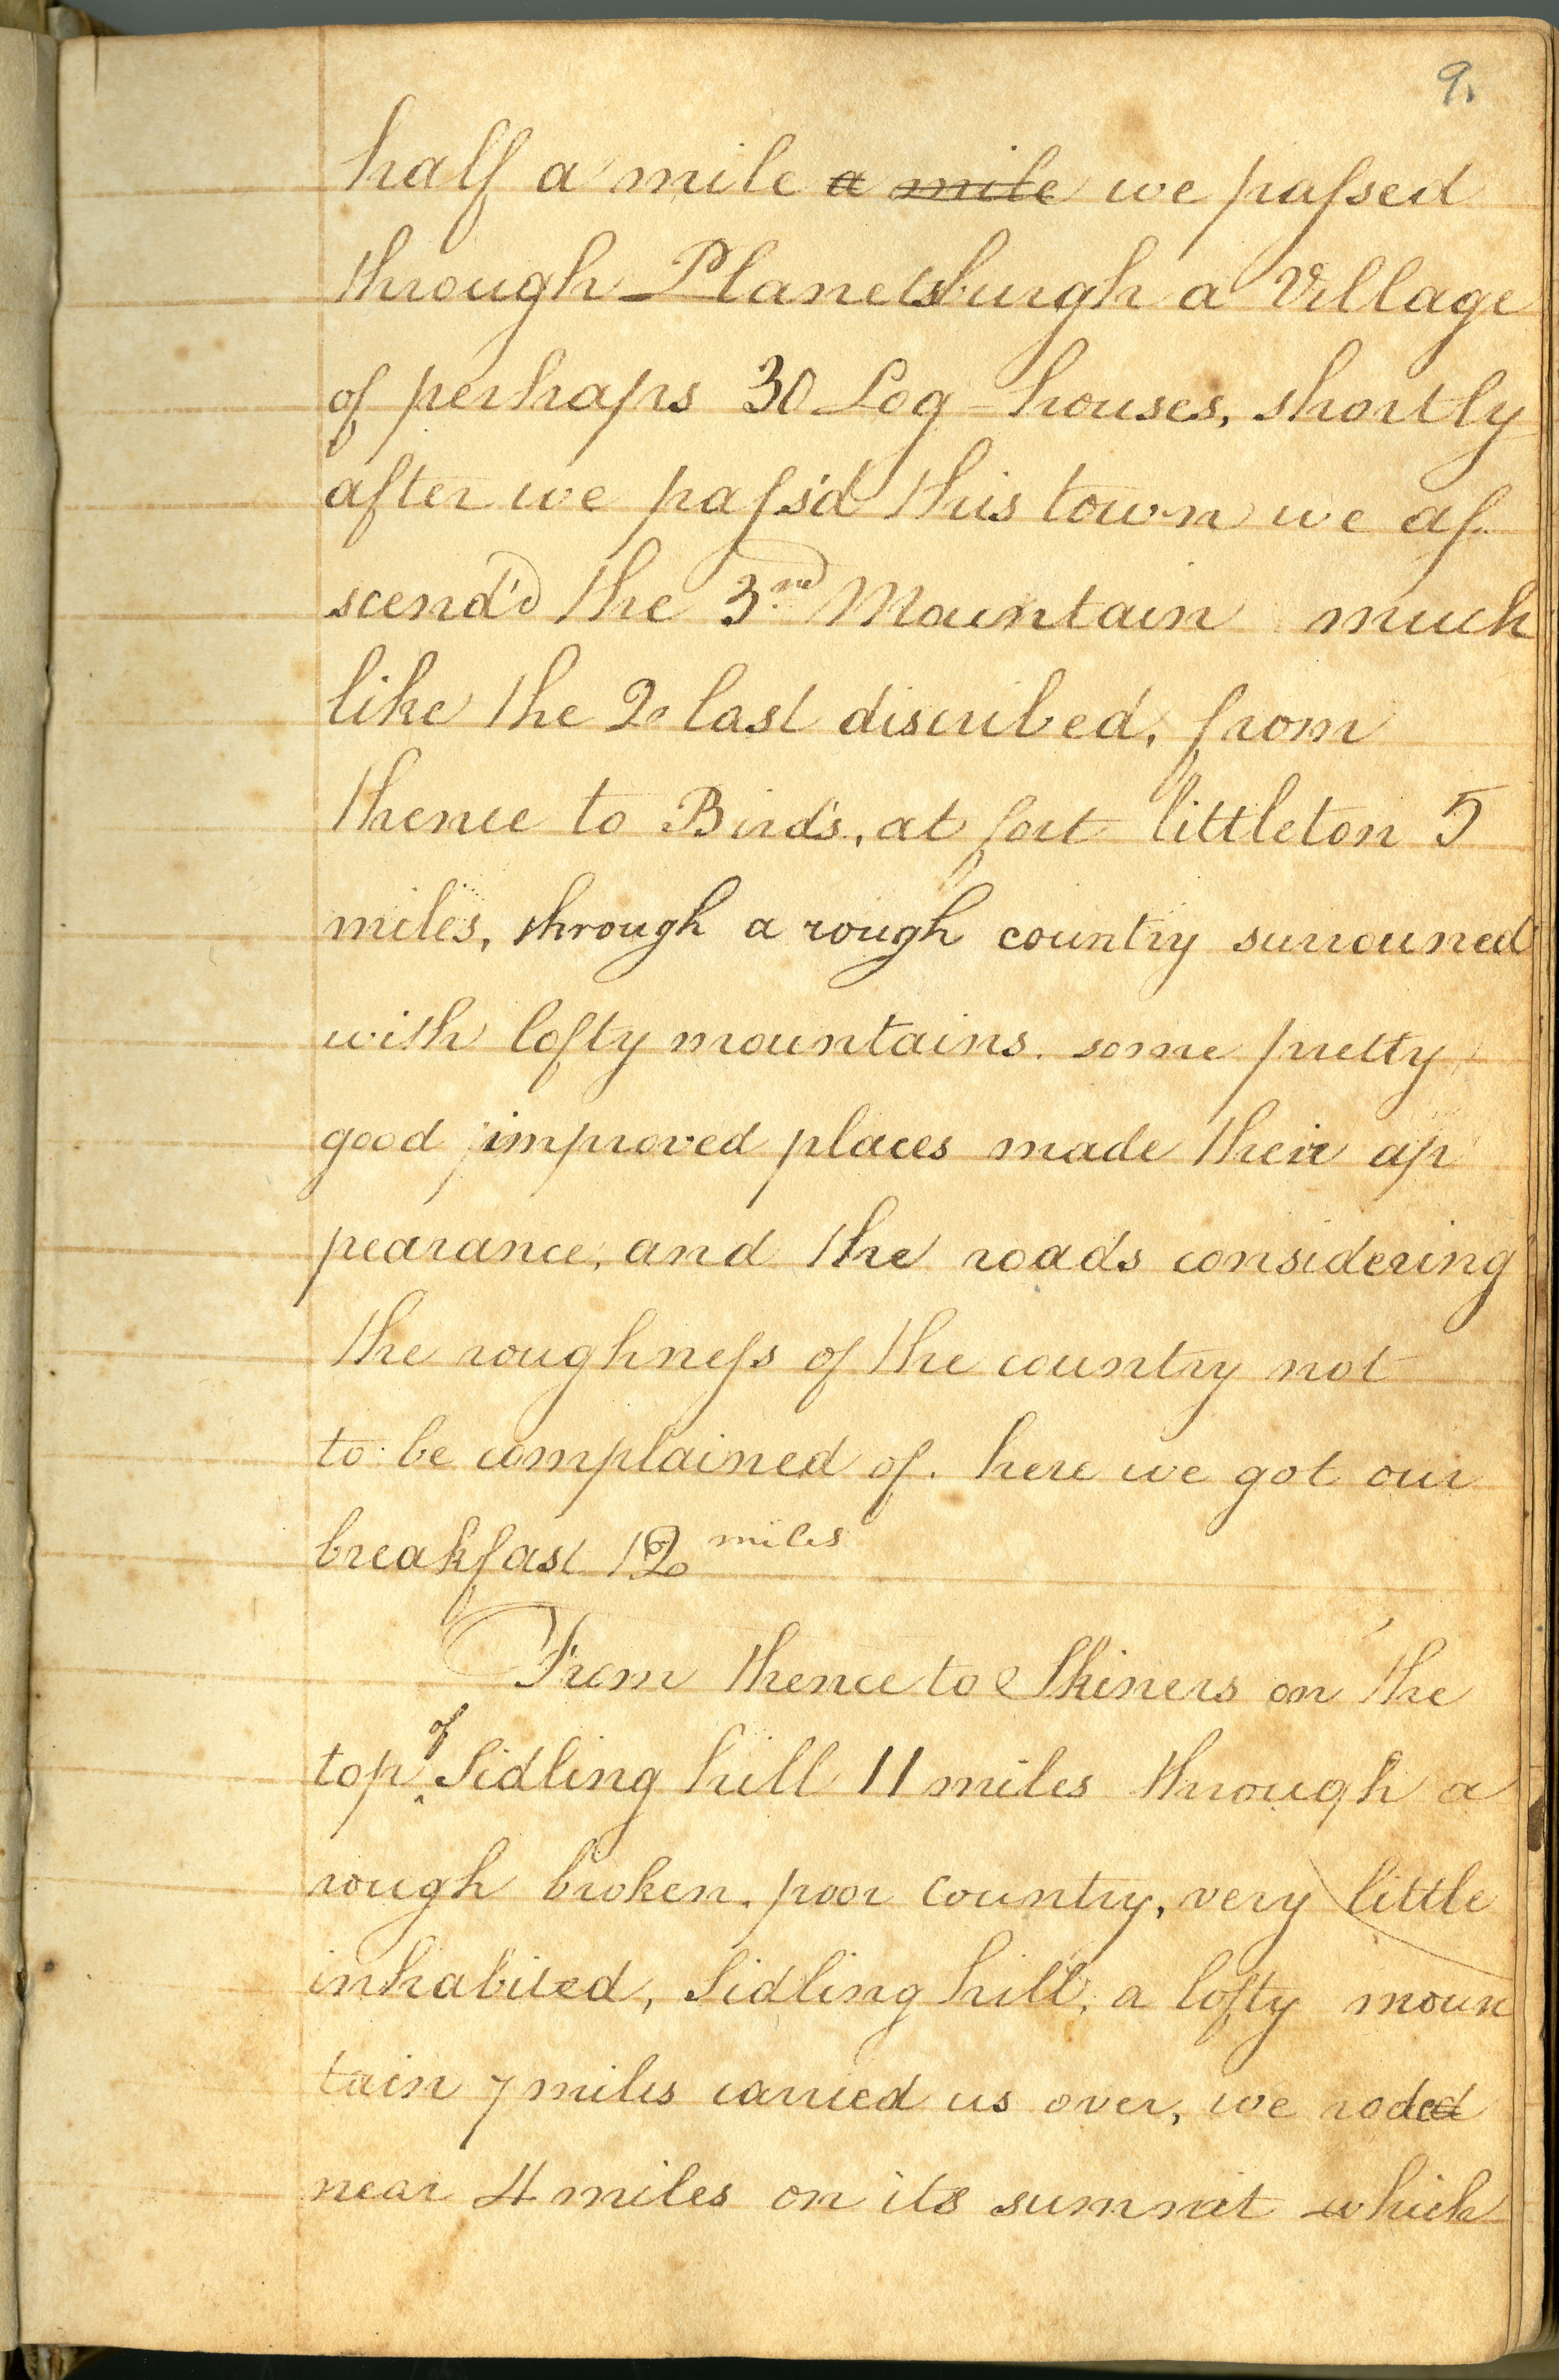 9.
half a mile a mile we paſsed
through Planetsburgh a Village
of perhaps 30 Log-houses, shortly
after we paſs'd this town we aſ-
scend'd the 3.nd Mountain much
like the 2 last discribed, from
thence to Birds, at fort littleton 5
miles, through a rough country surrouned
with lofty mountains. some pretty
good improved places made their ap
pearance, and the roads considering
the roughneſs of the country not
to be complained of. here we got our
breakfast 12 miles
From thence to Skiners on the
top of Sidling hill 11 miles through a
rough broken, poor country, very little
inhabited, Sidling hill, a lofty moun
tain 7 miles carried us over, we roded
near 4 miles on its summit which